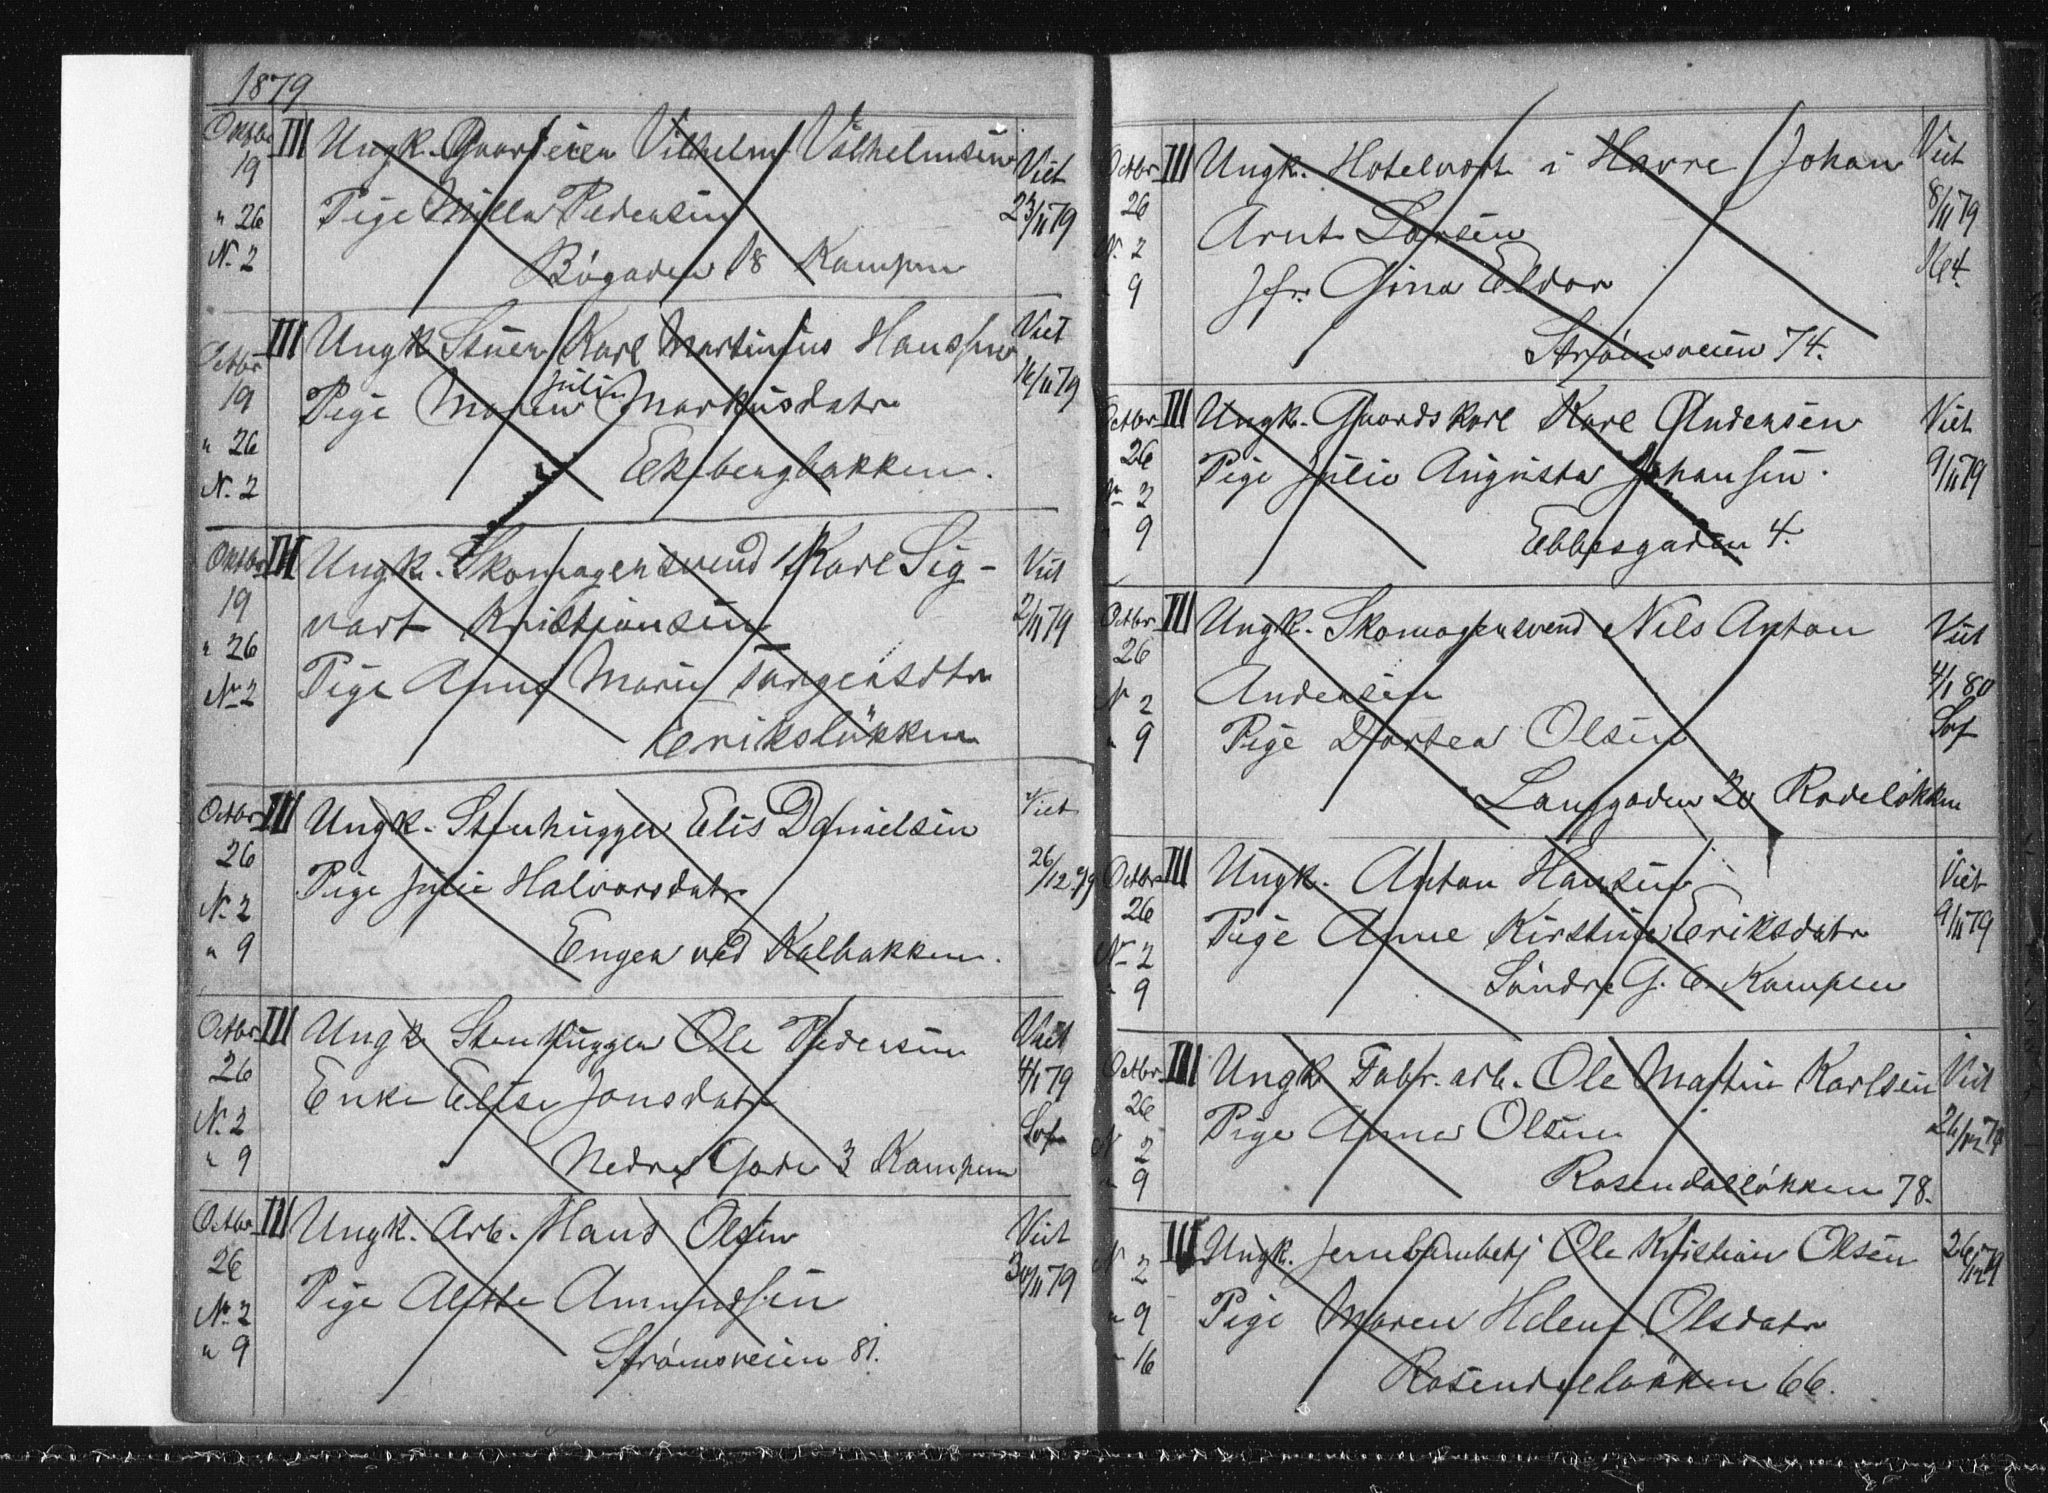 1879
Oktbr III Ungk. Vilhelm Vilhelmsen Viet
19 Pige Milla Pedersen 23/11 79
" 26 Bögaden 18 Kampen
N. 2
Octbr III Ungk. Karl Martinius Hanssen Viet
19 Pige Maren Julie Markusdatr 16/11 79
" 26 Ekebergbakken.
N. 2
Oktbr III Ungk. Skomagersvend Karl Sig-
19 vart Kristiansen Viet 2/11 79
" 26 Pige Anne Marie Torgersdtr
Nr 2 Erikslökken
Octbr III Ungk. Stenhugger Elis Danielsen Viet
26 Pige Julie Halvorsdatr 26/12 79
N. 2 Engen ved Kalbakken.
" 9
Octbr III Ungk Stenhugger Ole Pedersen Viet
26 Enke Elise Jonsdatr 4/1 79
N. 2 Nedre Gade 3 Kampen
" 9
Octbr III Ungk. Arb. Hans Olsen Viet
26 Pige Alette Amundsen 30/11 79
Nr 2 Strømsveien 81.
" 9
Octbr III Ungk. Hotelvært i Havre Johan Viet
26 Arnt Larsen 8/11 79
N. 2 Jfr. Gina Eldor 164.
" 9 Strømsveien 74.
Octbr III Ungk. Gaardskarl Karl Andersen Viet
26 Pige Julie Augusta Johansen. 9/11 79
Nr 2 Ebbesgaden 4.
" 9
Octbr III Ungk. Skomagersvend Nils Anton Viet
26 Andersen 4/1 80
N 2 Pige Dortea Olsen
" 9 Langgaden 20 Rodeløkken
Octbr III Ungk. Anton Hansen Viet
26 Pige Anne Kirstine Eriksdatr 9/11 79
Nr 2 Söndre G. 6 Kampen
" 9
Octbr III Ungk Fabr. arb. Ole Martin Karlsen Viet
26 Pige Anne Olsen 26/12 79
N 2 Rosendalløkken 78.
" 9
N 2 III Ungk. Jernbanebetj Ole Kristian Olsen 26/12 79
" 9 Pige Maren Helene Olsdatr
" 16 Rosendalløkken 66.